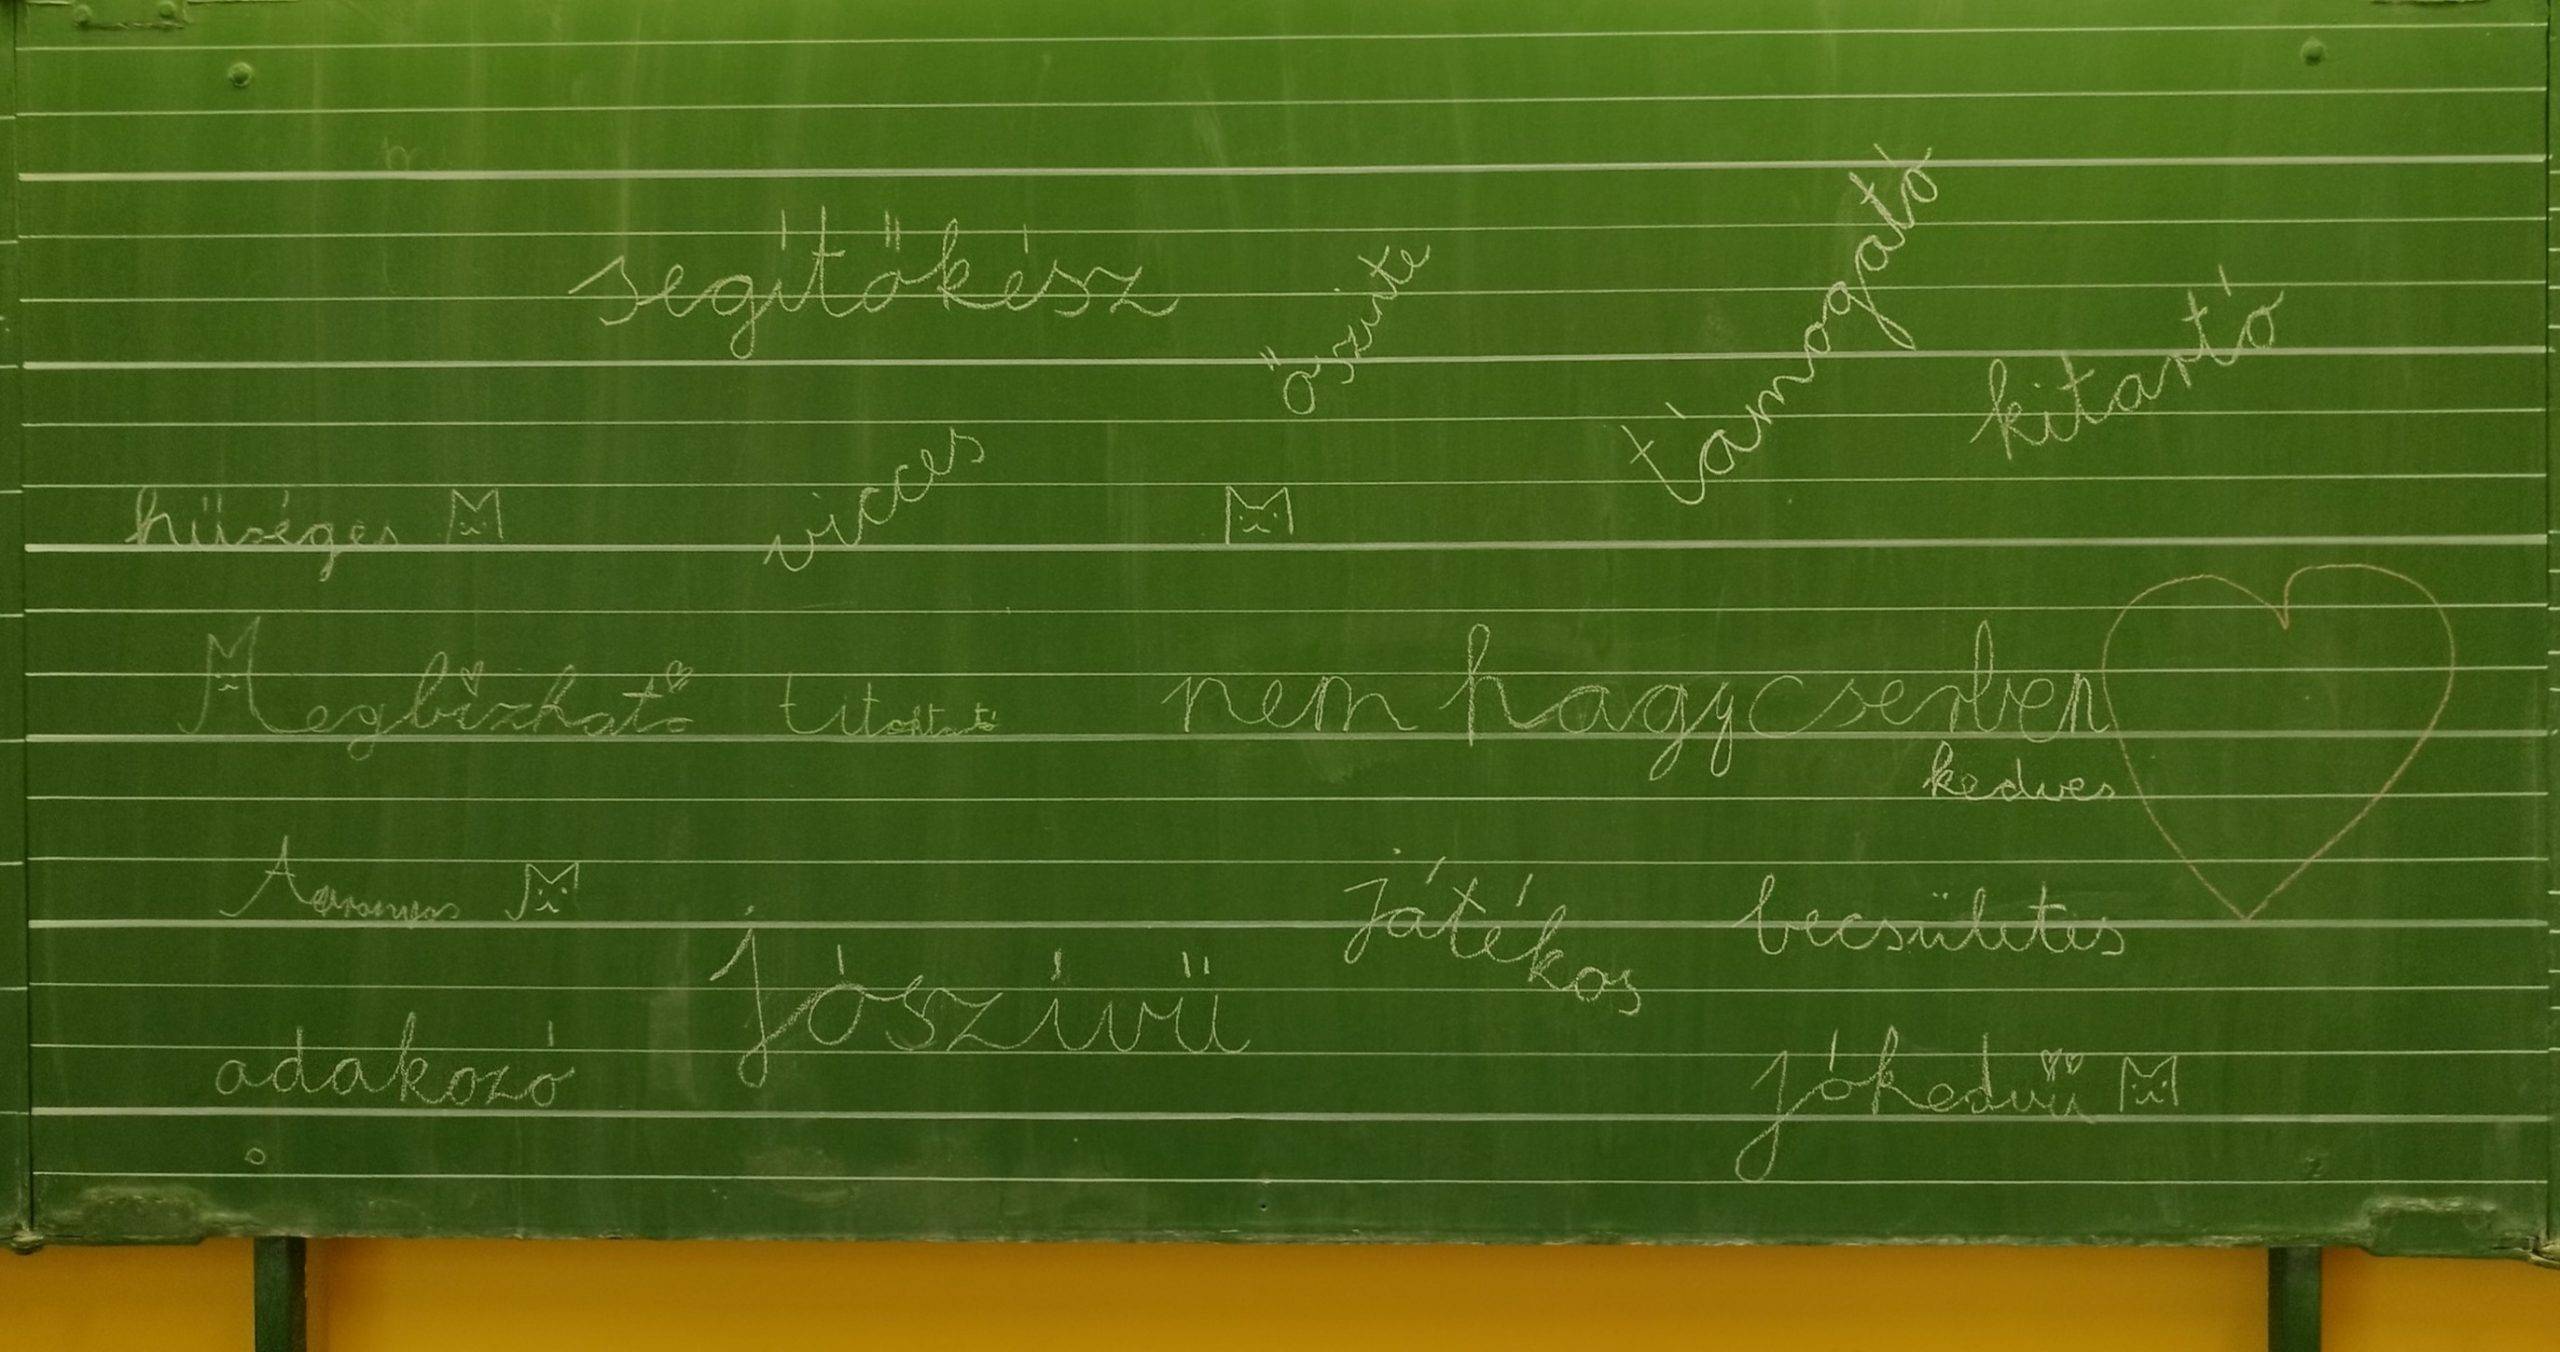 segítőkész
őszinte
támogató
kitartó
hűséges
vicces
Megbízható
nem hagy cserben
kedves
Aaranyos
játékos
becsületes
jószívű
adakozó
jókedvű